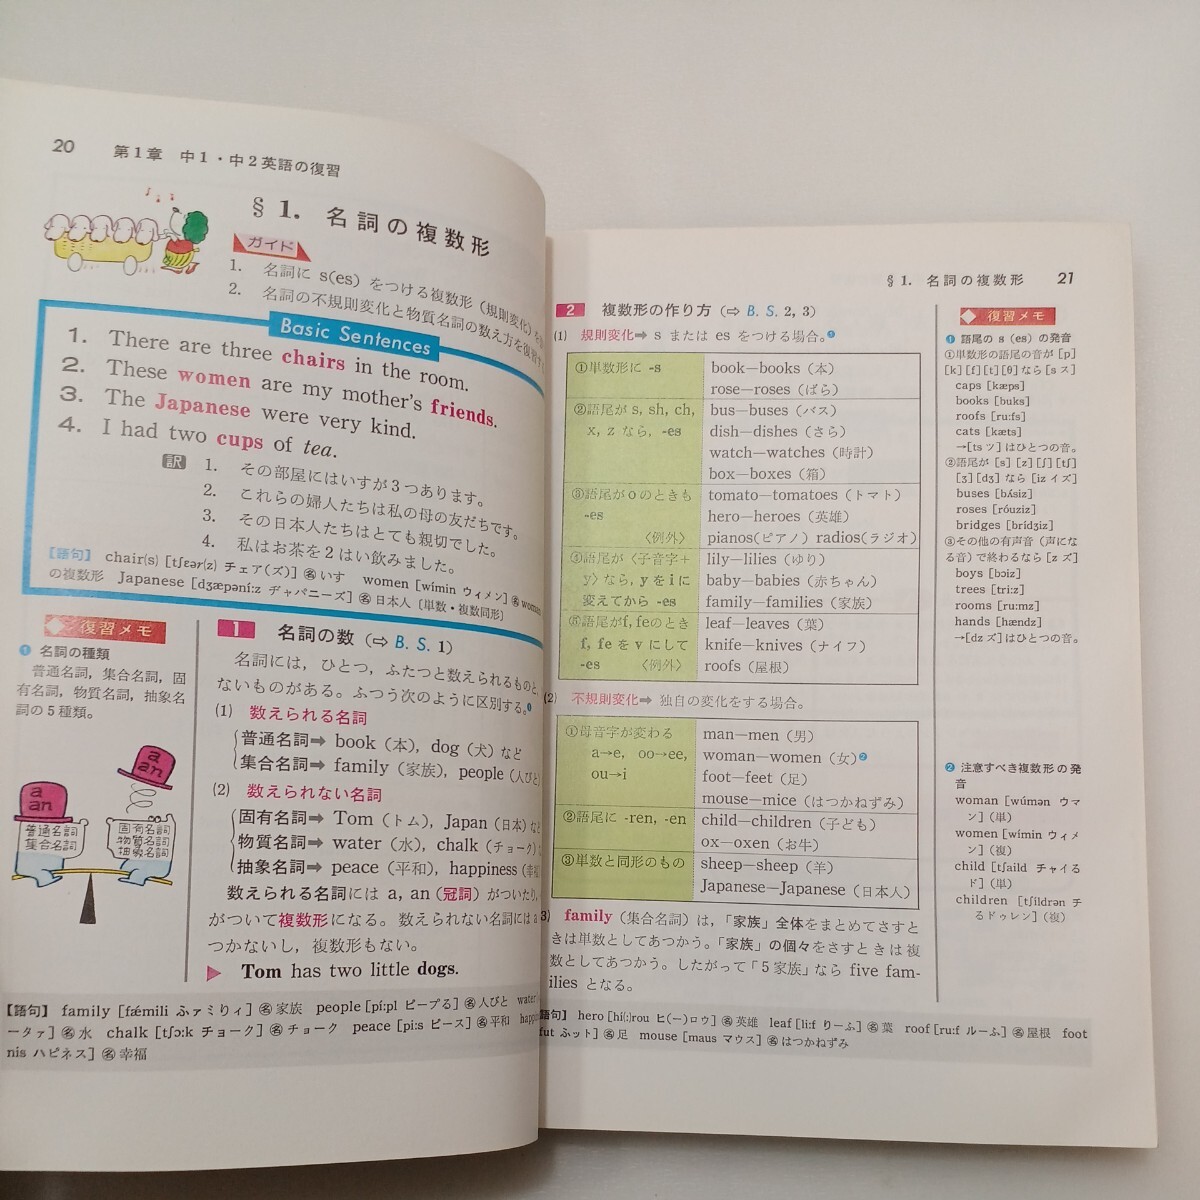 20 第1章 中1・中2英語の復習
§1. 名詞の複数形
ガイド
1. 名詞に s(es) をつける複数形(規則変化)を
2. 名詞の不規則変化と物質名詞の数え方を復習する
Basic Sentences
1. There are three chairs in the room.
2. These women are my mother's friends.
3. The Japanese were very kind.
4. I had two cups of tea.
訳 1. その部屋にはいすが3つあります。
2. これらの婦人たちは私の母の友だちです。
3. その日本人たちはとても親切でした。
4. 私はお茶を2はい飲みました。
【語句】 chair(s) [tʃɛər(z) チェア(ズ)] 名 いす women [wímin ウィメン] 名 woman
の複数形 Japanese [dʒæpəní:z ヂャパニーズ] 名 日本人〔単数・複数同形〕
復習メモ
❶ 名詞の種類
普通名詞, 集合名詞, 固
有名詞, 物質名詞, 抽象名
詞の5種類。
a
an
a
an
普通名詞
集合名詞
固有名詞
物質名詞
抽象名詞
1 名詞の数 (⇨ B. S. 1)
名詞には, ひとつ, ふたつと数えられるものと,
ないものがある。ふつう次のように区別する。❶
(1) 数えられる名詞
普通名詞➡ book(本), dog(犬)など
集合名詞➡ family(家族), people(人びと)
(2) 数えられない名詞
固有名詞➡ Tom(トム), Japan(日本)など
物質名詞➡ water(水), chalk(チョーク)
抽象名詞➡ peace(平和), happiness(幸福
数えられる名詞には a, an(冠詞)がついたり,
がついて複数形になる。数えられない名詞には a
つかないし, 複数形もない。
▶ Tom has two little dogs.
【語句】 family [fǽmili ふァミりィ] 名 家族 people [pí:pl ピープる] 名 人びと water
ータァ] 名 水 chalk [tʃɔ:k チョーク] 名 チョーク peace [pi:s ピース] 名 平和 happi
nis ハピネス] 名 幸福
§1. 名詞の複数形 21
2 複数形の作り方 (⇨ B. S. 2, 3)
(1) 規則変化➡ s または es をつける場合。❶
①単数形に -s
book—books(本)
rose—roses(ばら)
②語尾が s, sh, ch,
x, z なら, -es
bus—buses(バス)
dish—dishes(さら)
watch—watches(時計)
box—boxes(箱)
③語尾が o のときも
-es
〈例外〉
tomato—tomatoes(トマト)
hero—heroes(英雄)
pianos(ピアノ) radios(ラジオ)
④語尾が〈子音字+
y〉なら, y を i に
変えてから -es
lily—lilies(ゆり)
baby—babies(赤ちゃん)
family—families(家族)
⑤語尾が f, fe のとき
f, fe を v にして
-es 〈例外〉
leaf—leaves(葉)
knife—knives(ナイフ)
roofs(屋根)
(2) 不規則変化➡ 独自の変化をする場合。
①母音字が変わる
a→e, oo→ee,
ou→i
man—men(男)
woman—women(女)❷
foot—feet(足)
mouse—mice(はつかねずみ)
②語尾に -ren, -en
child—children(子ども)
ox—oxen(お牛)
③単数と同形のもの
sheep—sheep(羊)
Japanese—Japanese(日本人)
3) family(集合名詞)は,「家族」全体をまとめてさすと
きは単数としてあつかう。「家族」の個々をさすときは複
数としてあつかう。したがって「5家族」なら five fam-
ilies となる。
語句】 hero [hí(:)rou ヒ(ー)ロウ] 名 英雄 leaf [li:f りーふ] 名 葉 roof [ru:f ルーふ] 名 屋根 foot
fut ふット] 名 足 mouse [maus マウス] 名 はつかねずみ
復習メモ
❶ 語尾の s(es)の発音
①単数形の語尾の音が [p]
[k] [f] [t] [θ] なら [s ス]
caps [kæps]
books [buks]
roofs [ru:fs]
cats [kæts]
→[ts ツ] はひとつの音。
②語尾が [s] [z] [ʃ] [tʃ]
[ʒ] [dʒ] なら [iz イズ]
buses [bʌ́siz]
roses [róuziz]
bridges [brídʒiz]
③その他の有声音(声にな
る音)で終わるなら [z ズ]
boys [bɔiz]
trees [tri:z]
rooms [ru:mz]
hands [hændz]
→[dz ズ] はひとつの音。
❷ 注意すべき複数形の発
音
woman [wúmən ウマ
ン](単)
women [wímin ウィメ
ン](複)
child [tʃaild チャイる
ド](単)
children [tʃíldrən チ
るドゥレン](複)